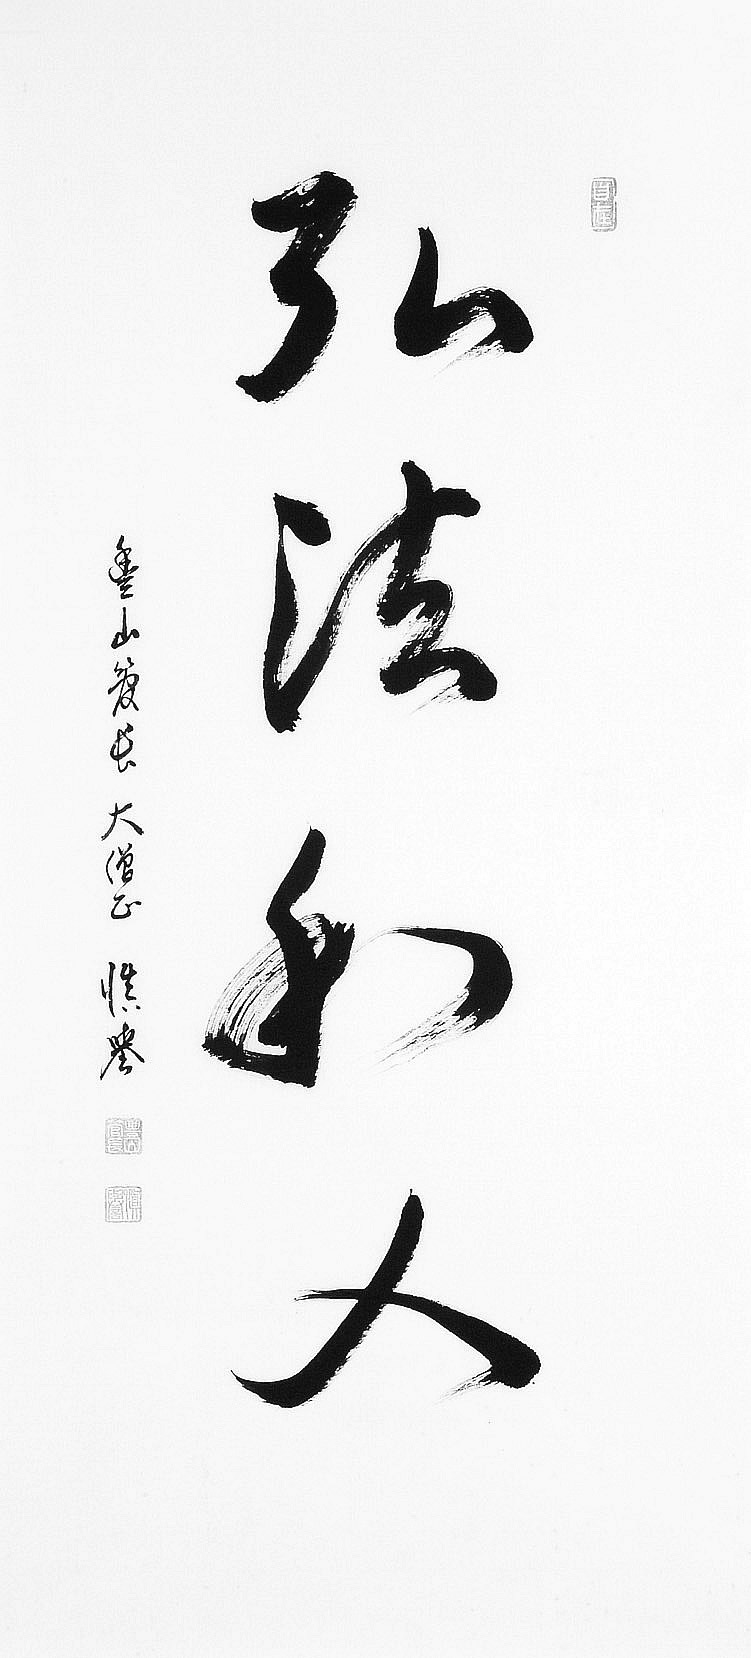 弘法利人
豊山管長 大僧正 慎誉
自在